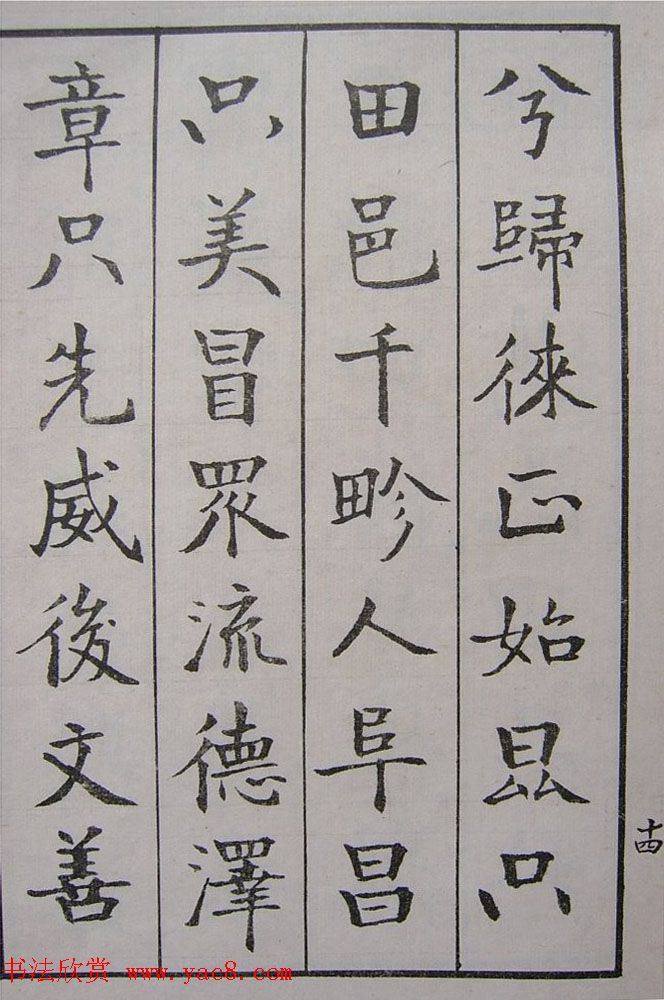 兮歸徠正始昆只
田邑千畛人阜昌
只美冒眾流德澤
章只先威後文善
十四
书法欣赏 www.yac8.com